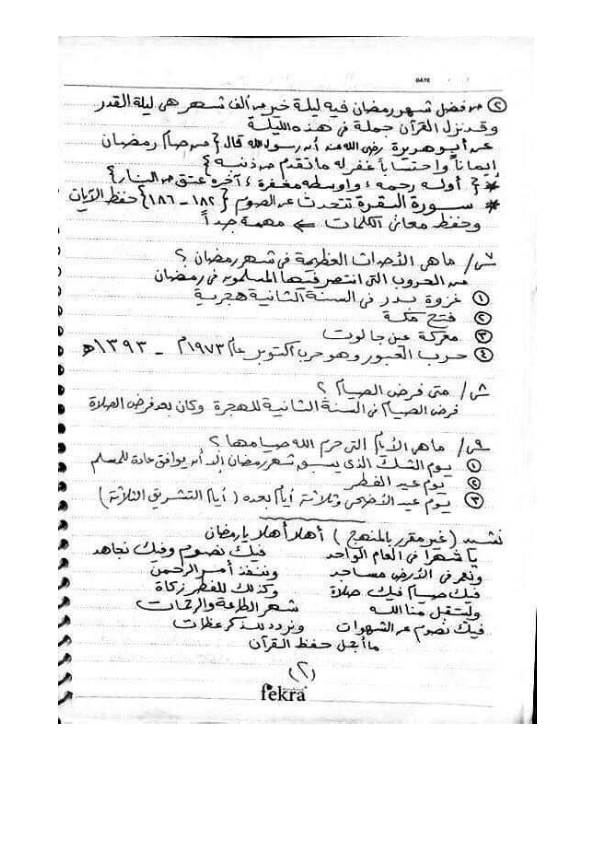 DATE / /
② من فضل شهر رمضان فيه ليلة خير من ألف شهر هى ليلة القدر
وقد نزل القرآن جملة فى هذه الليلة
عن أبو هريرة رضى الله عنه أن رسول الله قال { من صام رمضان
إيماناً واحتساباً غفر له ما تقدم من ذنبه }
* { أوله رحمه ، وأوسطه مغفرة ، آخره عتق من النار }
* سورة البقرة تتحدث عن الصوم { ١٨٢ - ١٨٦ } حفظ الآيات
وحفظ معانى الكلمات ← مهمة جداً
س٧/ ما هى الأحداث العظيمة فى شهر رمضان ؟
من الحروب التى انتصر فيها المسلمون فى رمضان
① غزوة بدر فى السنة الثانية هجرية
② فتح مكة
③ معركة عين جالوت
④ حرب العبور وهو حرب أكتوبر عام ١٩٧٣م - ١٣٩٣ه
س/ متى فرض الصيام ؟
فرض الصيام فى السنة الثانية للهجرة وكان بعد فرض الصلاة
س٩/ ما هى الأيام التى حرم الله صيامها ؟
① يوم الشك الذى يسبق شهر رمضان إلا أن يوافق عادة للمسلم
② يوم عيد الفطر
③ يوم عيد الأضحى وثلاثة أيام بعده ( أيام التشريق الثلاثة )
نشيد ( غير مقرر بالمنهج ) أهلا أهلا يا رمضان
يا شهرا فى العام الواحد فيك نصوم وفيك نجاهد
ونعمر فى الأرض مساجد وننفذ أمر الرحمن
فيك صيام فيك صلاة وكذلك للفطر زكاة
وليتقبل منا الله شهر الطاعة والرحمات
فيك نصوم عن الشهوات ونردد للذكر عظات
ما أجمل حفظ القرآن
(٢)
fekra